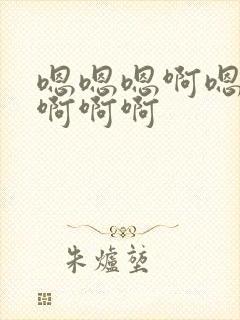 嗯嗯嗯啊嗯
啊啊啊
朱爐蓝